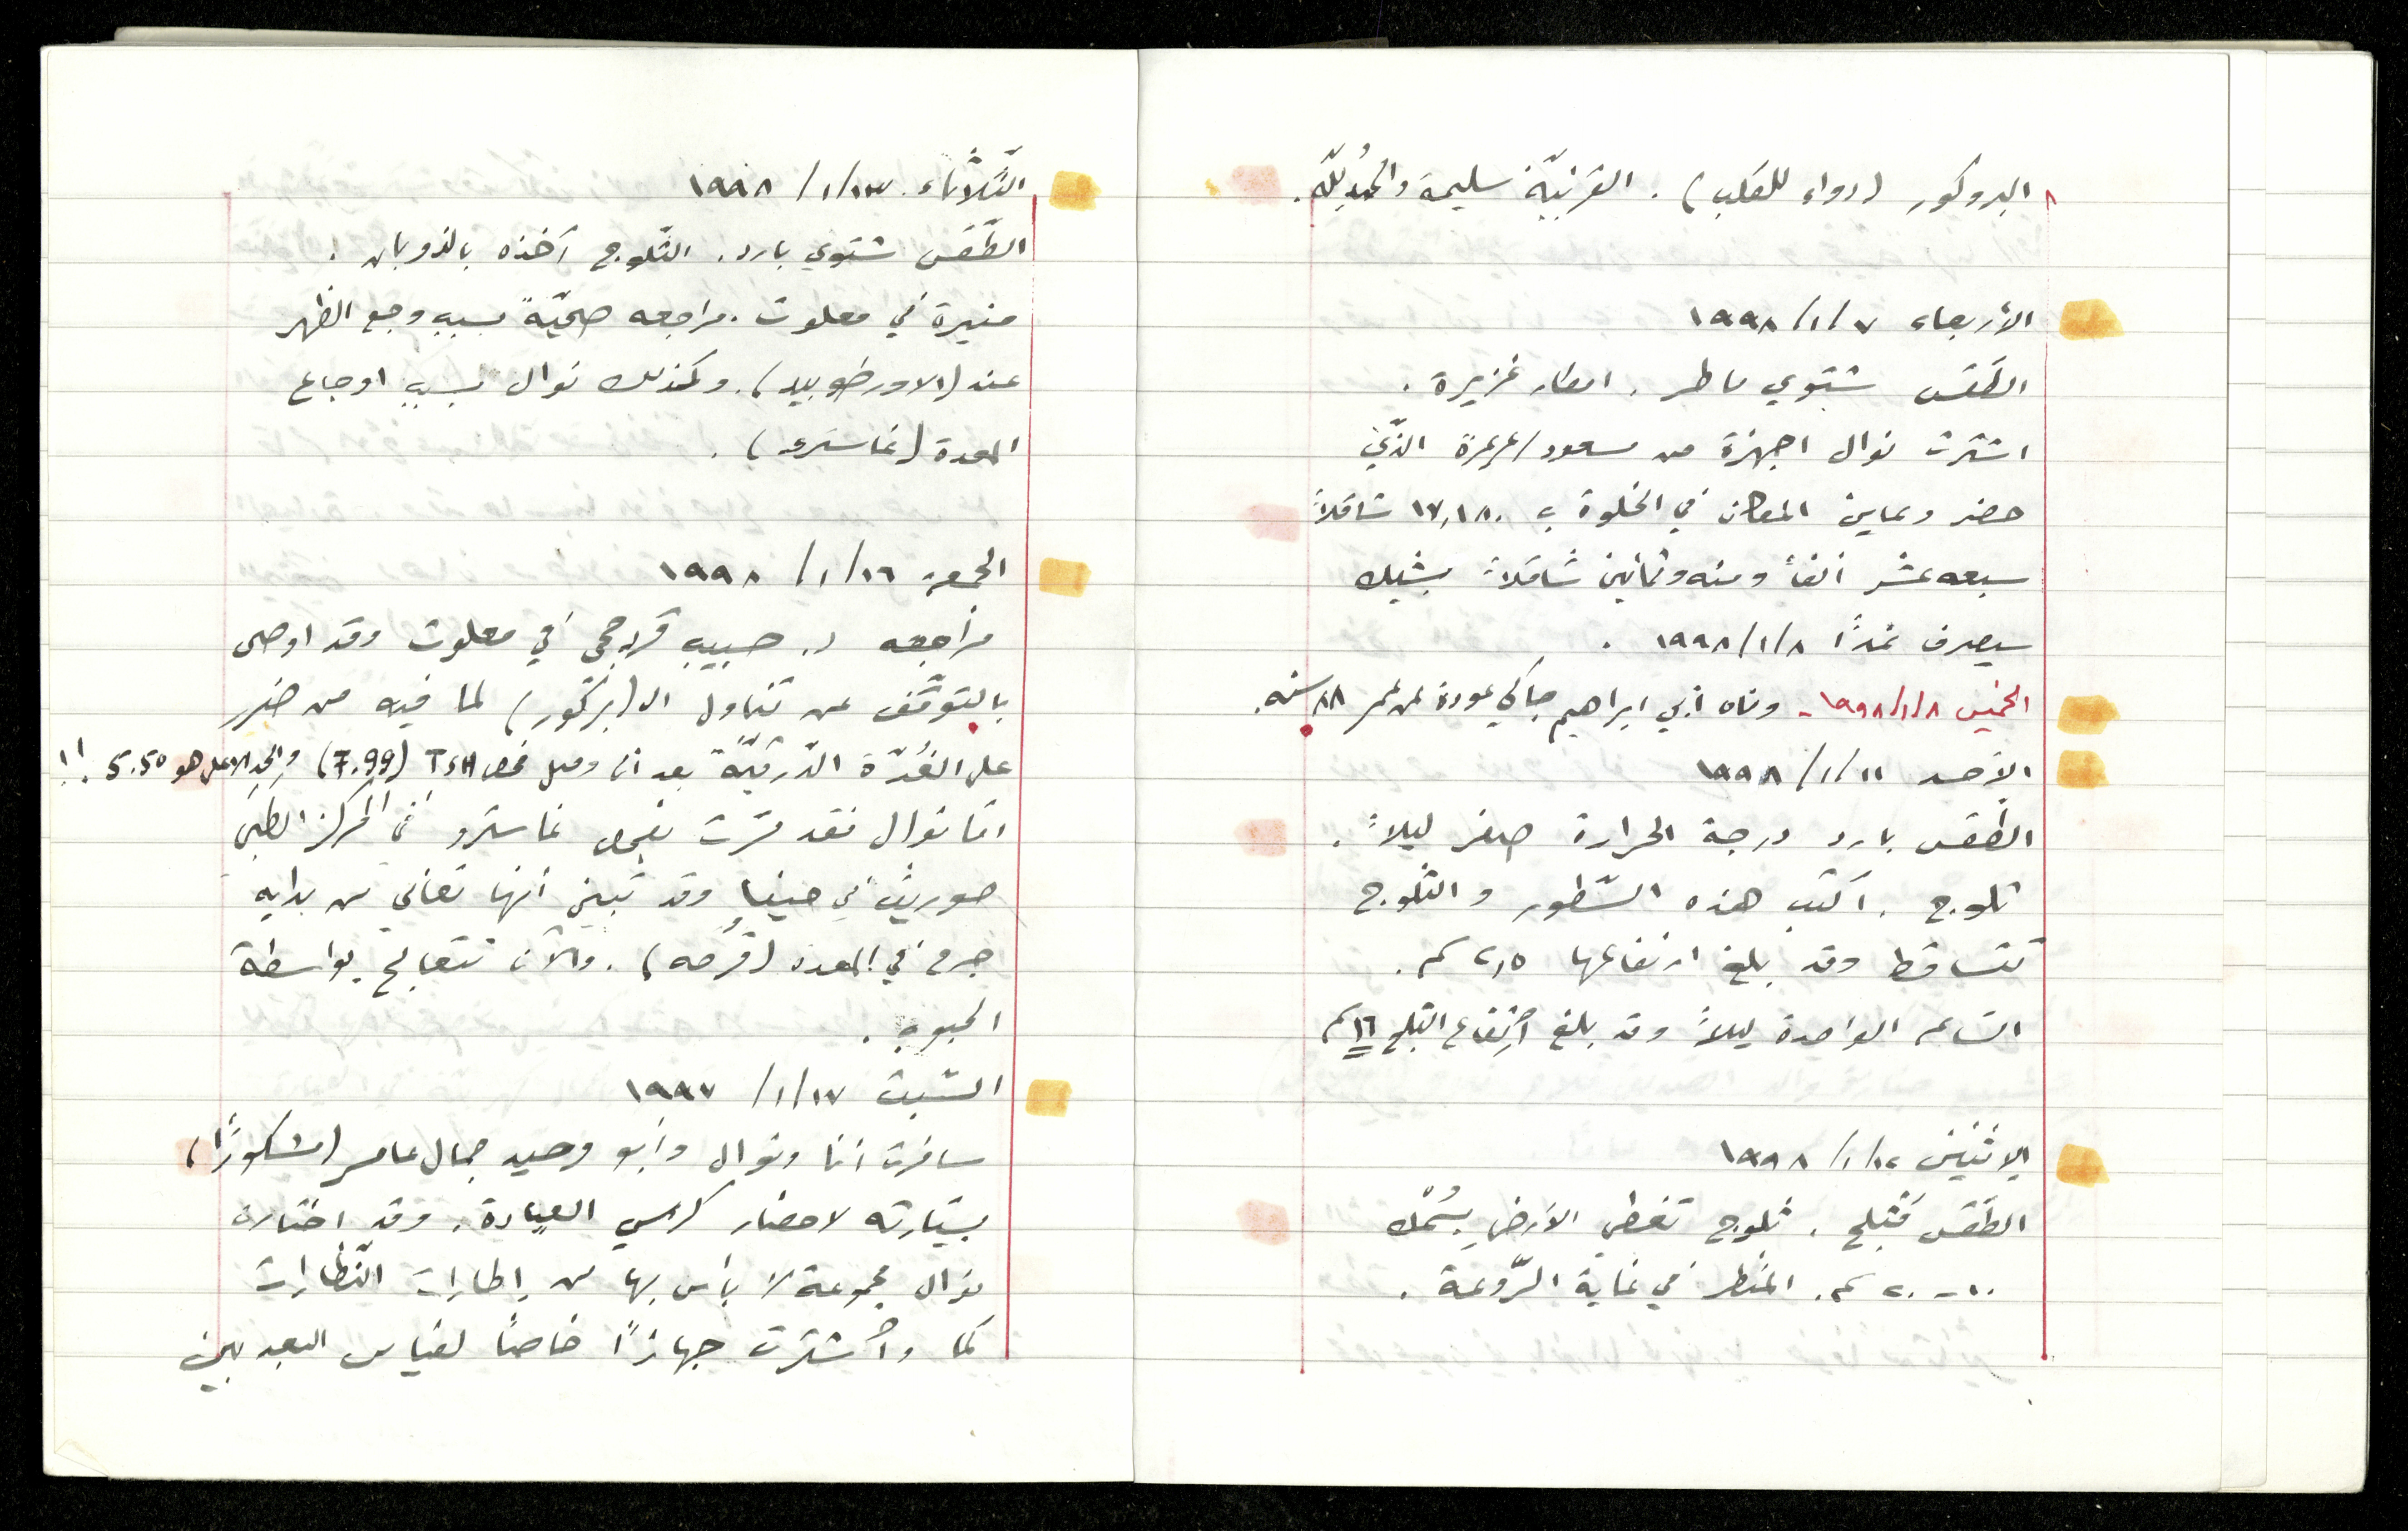 البروكور (دواء للقلب). القرنيّة سليمة والحمدُ للّه.
الأربعاء ١٩٩٨/١/٧
الطقس شتوي ماطر. امطار غزيرة.
اشترت نوال اجهزة من مسعود / الذّي
حضر وعاين المكان في الخلوة ب ١٧,١٨٠ شاقلاً
سبعه عشر ألفاً ومئه وثمانين شاقلاً بشيك
سيصرف غدًا ١٩٩٨/١/٨.
الخميس ١٩٩٨/١/٨ - وفاه أبي ابراهيم جاكي عودة عن عمر ٨٨ سنه.
الأحد ١٩٩٨/١/١١
الطقس بارد درجة الحرارة صفر ليلاً.
ثلوج. اكتب هذه السّطور والثّلوج
تتساقط وقد بلغ ارتفاعها ٢,٥ سم.
السّاعه الواحدة ليلاً وقد بلغ اُرتفاع الثلج ١٦ سم
الإثنين ١٩٩٨/١/١٢
الطقس مُثلج. ثلوج تغطي الأرض بسُمْك
١٠ - ٢٠ سم. المنظر في غاية الرّوعة.
الثّلاثاء ١٩٩٨/١/١٣
الطّقس شتوي بارد. الثّلوج آخذه بالذوبان.
منيرة في معلوت. مراجعه صحيّةً بسبب وجع الظهر
عند (الاورطوبيد). وكذلك نوال بسبب اوجاع
المعدة (غاسترو).
الجمعة ١٩٩٨/١/١٦
مراجعه د. حبيب قرد حجي في معلوت وقد اوصى
بالتوقّف عن تناول الـ(بركور) لما فيه من ضرر
على الغُدّة الدّرقيّة بعد ان وصل فحص TSH (7.99) والحد الاعلى هو 5.50 !!
امّا نوال فقد مرّت بفحص غاسترو في المركز الطبي
حوريف في حيفا وقد تبين أنها تعاني من بدايه
جرح في المعدة (قُرحه). والآن تتعالج بواسطة
الحبوب.
السّبت ١٩٩٧/١/١٧
سافرت أنا ونوال وأبو وحيد جمال عامر (مشكورًا)
بسيّارته لاحضار كرسي العيادة. وقد اختارت
نوال مجموعة لا بأس بها من إطارات النّظارات
كما واُشترت جهازًا خاصًا لقياس البعد بين